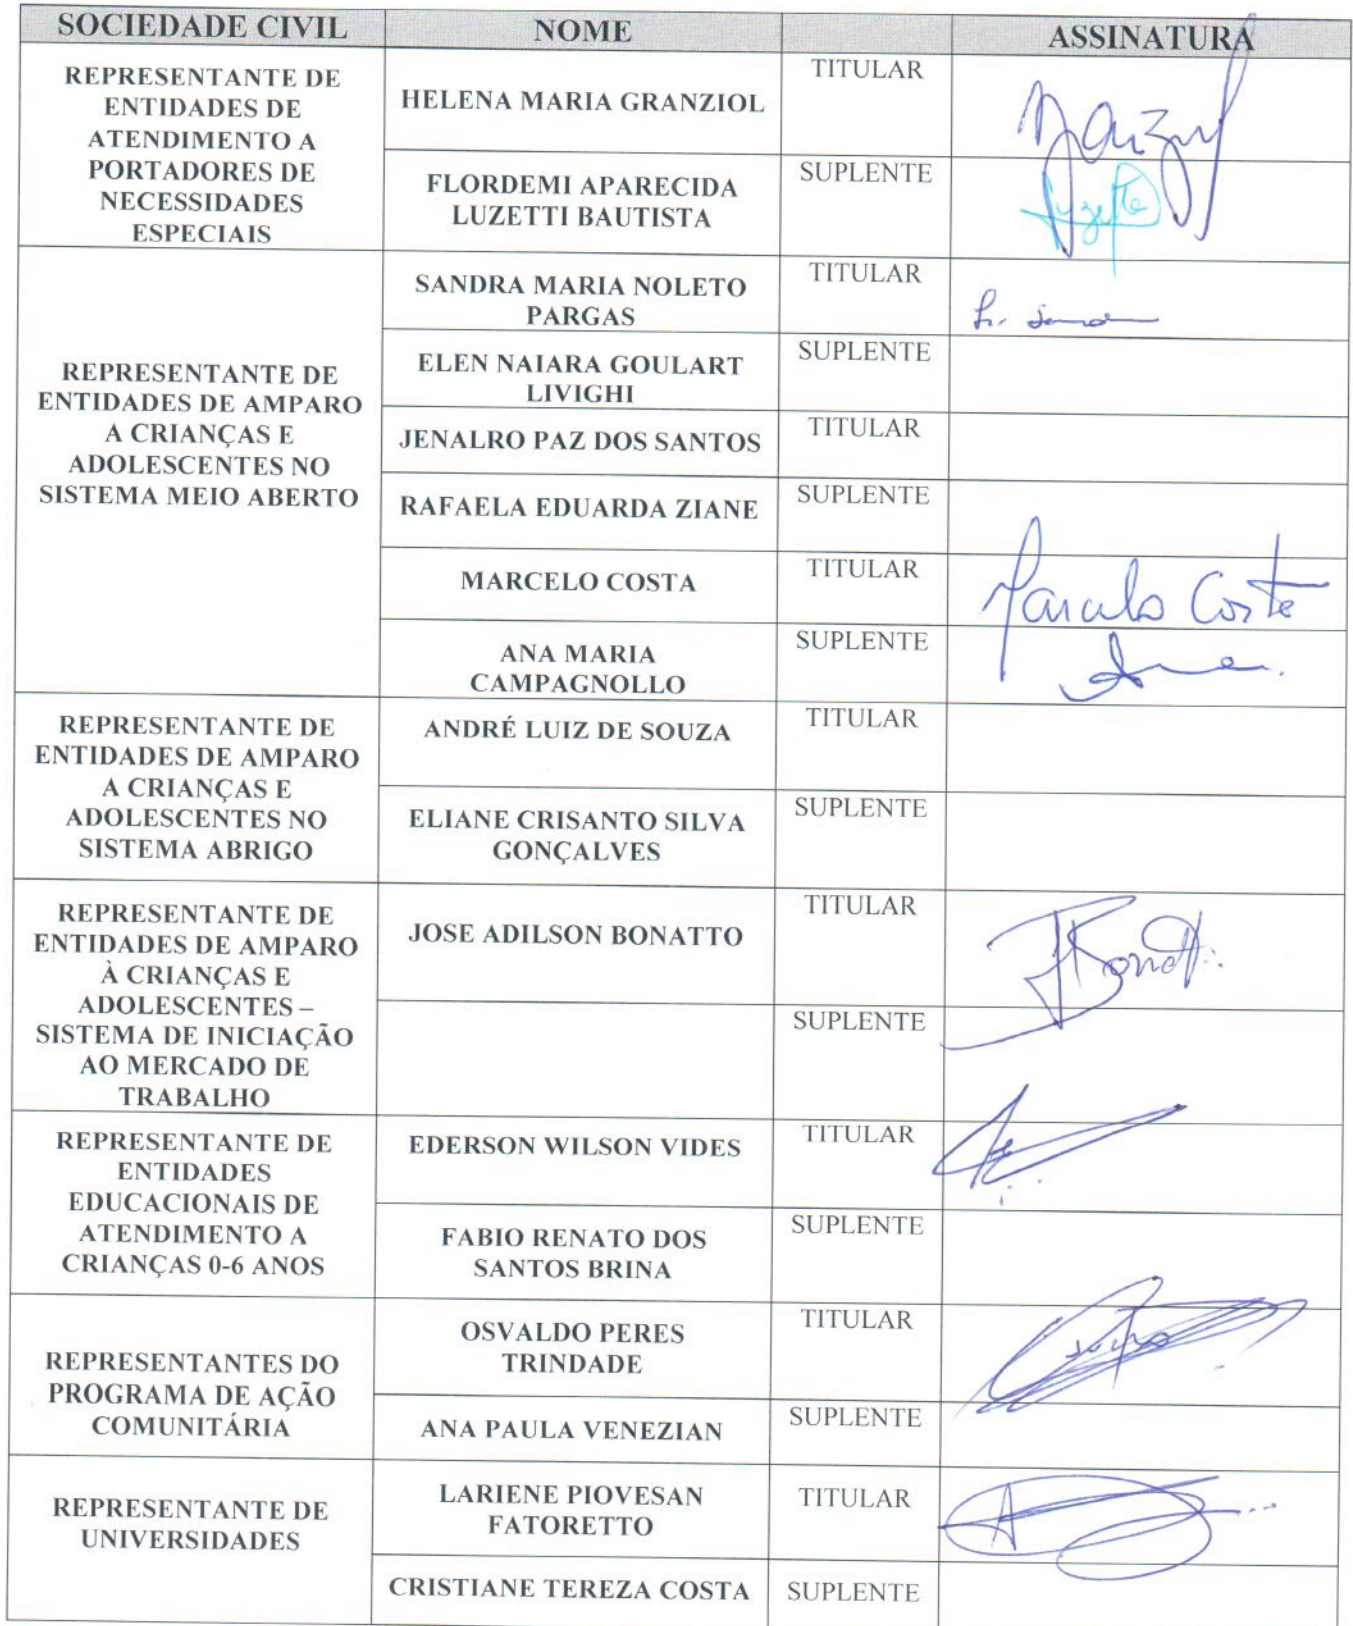 SOCIEDADE CIVIL NOME ASSINATURA
REPRESENTANTE DE
ENTIDADES DE
ATENDIMENTO A
PORTADORES DE
NECESSIDADES
ESPECIAIS
HELENA MARIA GRANZIOL
TITULAR
FLORDEMI APARECIDA
LUZETTI BAUTISTA
SUPLENTE
REPRESENTANTE DE
ENTIDADES DE AMPARO
A CRIANÇAS E
ADOLESCENTES NO
SISTEMA MEIO ABERTO
SANDRA MARIA NOLETO
PARGAS
TITULAR
ELEN NAIARA GOULART
LIVIGHI
SUPLENTE
JENALRO PAZ DOS SANTOS
TITULAR
RAFAELA EDUARDA ZIANE
SUPLENTE
MARCELO COSTA
TITULAR
Marcelo Costa
ANA MARIA
CAMPAGNOLLO
SUPLENTE
REPRESENTANTE DE
ENTIDADES DE AMPARO
A CRIANÇAS E
ADOLESCENTES NO
SISTEMA ABRIGO
ANDRÉ LUIZ DE SOUZA
TITULAR
ELIANE CRISANTO SILVA
GONÇALVES
SUPLENTE
REPRESENTANTE DE
ENTIDADES DE AMPARO
À CRIANÇAS E
ADOLESCENTES –
SISTEMA DE INICIAÇÃO
AO MERCADO DE
TRABALHO
JOSE ADILSON BONATTO
TITULAR
SUPLENTE
REPRESENTANTE DE
ENTIDADES
EDUCACIONAIS DE
ATENDIMENTO A
CRIANÇAS 0-6 ANOS
EDERSON WILSON VIDES
TITULAR
FABIO RENATO DOS
SANTOS BRINA
SUPLENTE
REPRESENTANTES DO
PROGRAMA DE AÇÃO
COMUNITÁRIA
OSVALDO PERES
TRINDADE
TITULAR
ANA PAULA VENEZIAN
SUPLENTE
REPRESENTANTE DE
UNIVERSIDADES
LARIENE PIOVESAN
FATORETTO
TITULAR
CRISTIANE TEREZA COSTA
SUPLENTE